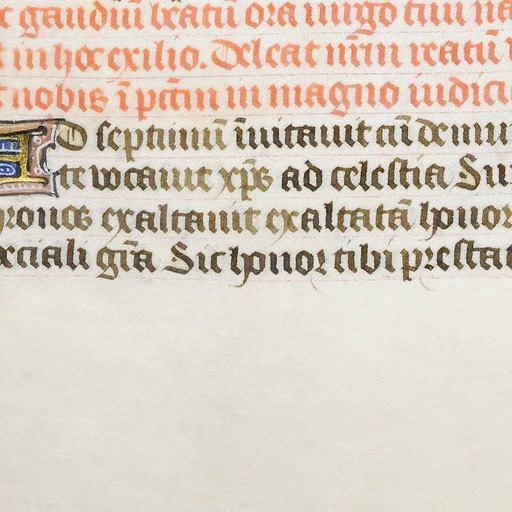 gaudiū beatū ora virgo tuū na
in hoc exilio. Deleat nr̄m reatū
nobis ī pctm̄ in magno iudici
D septimū īuitauit cū demu
te vocauit xp̄s ad celestia Su
hronos exaltauit exaltatā honor
eciali gr̄a Sic honor tibi presta